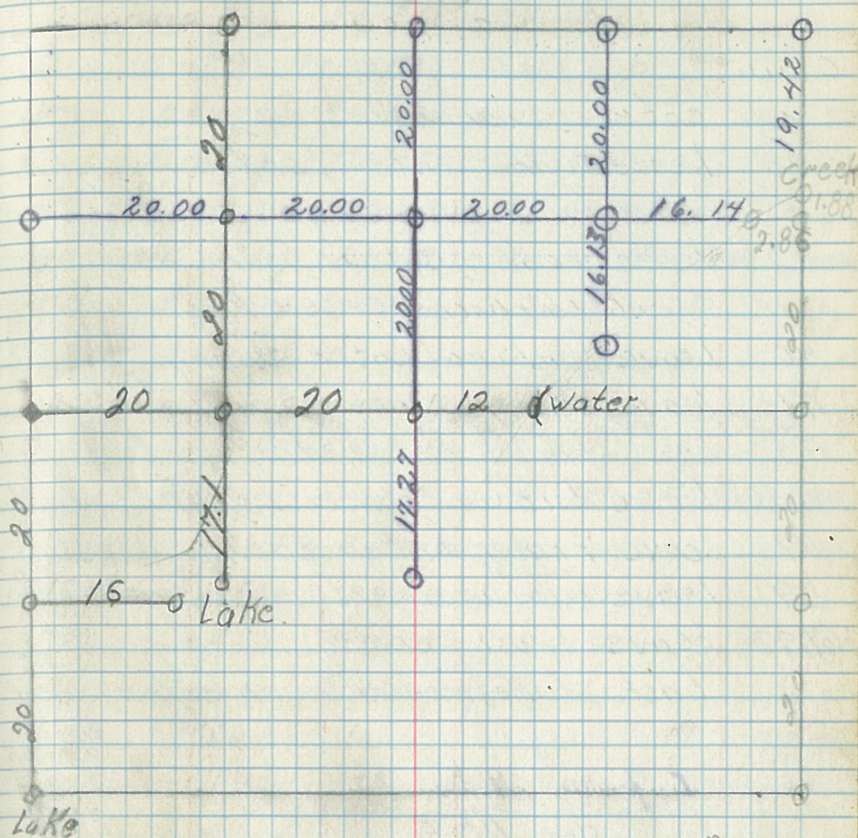 20
20.00
20.00
19.42
Creek
1.88
20.00
20.00
20.00
16.14
2.86
20
20.00
16.13
20
20
20
12
water
20
17.1
17.27
20
16
Lake.
20
20
Lake